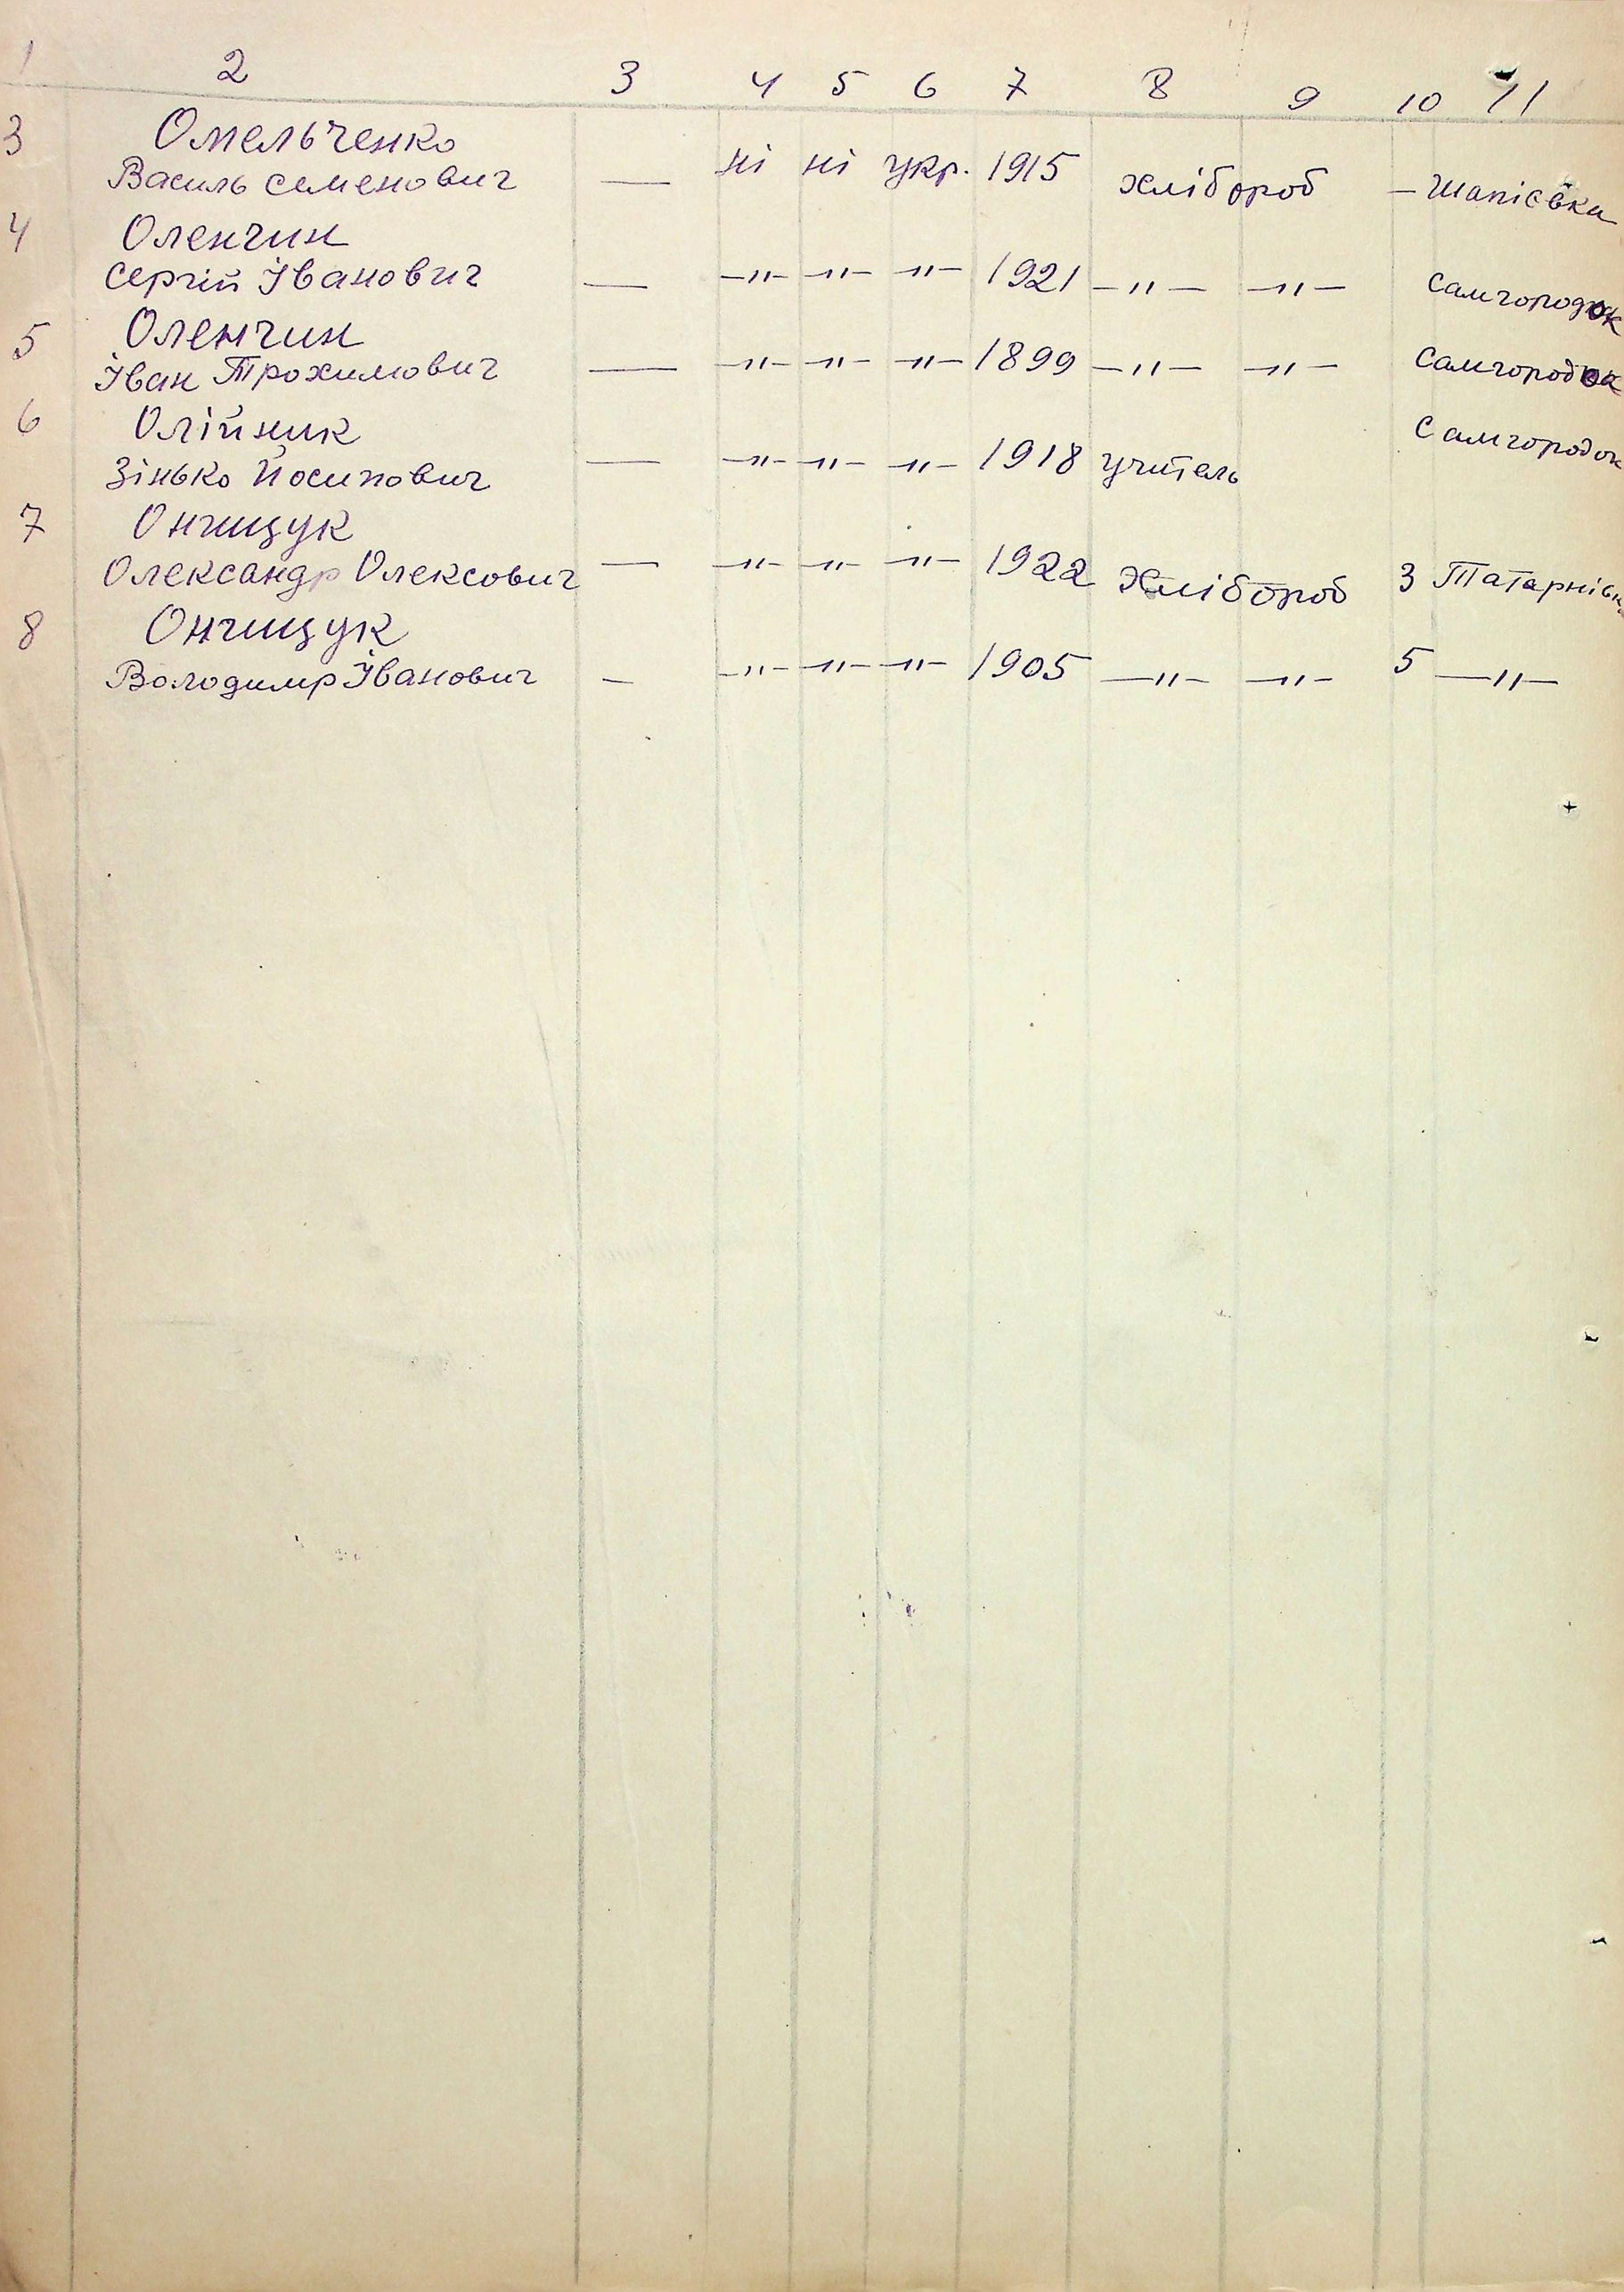 1 2 3 4 5 6 7 8 9 10 11
3 Омельченко
Василь Семенович — ні ні укр. 1915 хлібороб — Шапієвка
4 Оленчин
Сергій Іванович — —"— —"— —"— 1921 —"— —"— Самгородок
5 Оленчин
Іван Трохимович — —"— —"— —"— 1899 —"— —"— Самгородок
6 Олійник
Зінько Йосипович — —"— —"— —"— 1918 учитель Самгородок
7 Онищук
Олександр Олексович — —"— —"— —"— 1922 Хлібороб 3 Татарнівка
8 Онищук
Володимр Іванович — —"— —"— —"— 1905 —"— —"— 5 —"—